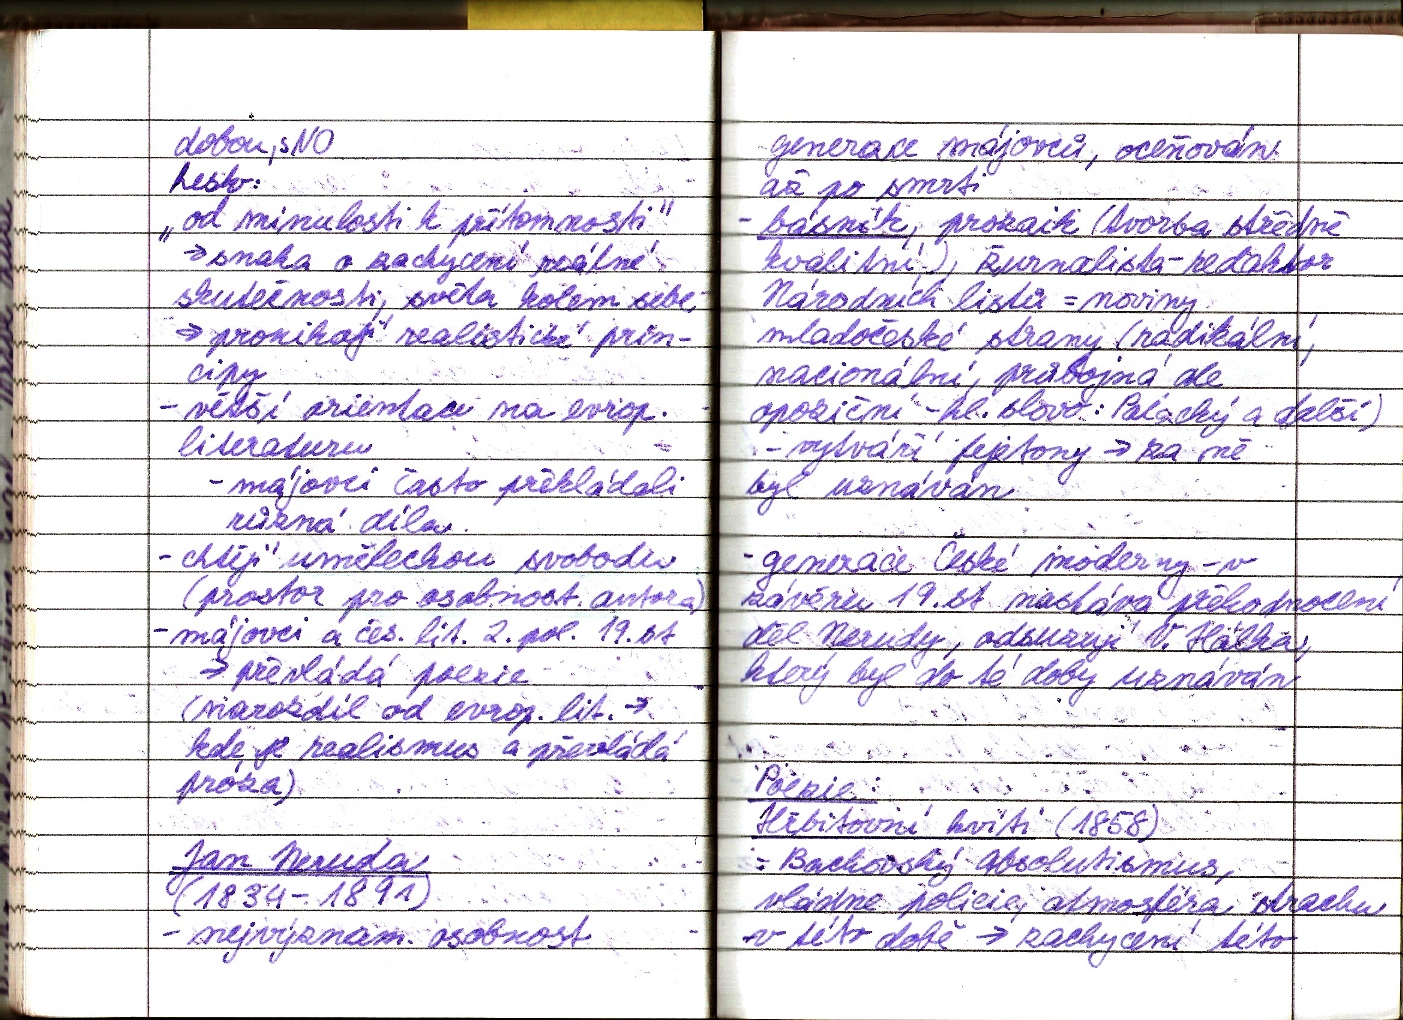 dobou, s NO
heslo:
„od minulosti k přítomnosti"
→ snaha o zachycení reálné
skutečnosti, světa kolem sebe
→ pronikají realistické prin-
cipy
- větší orientace na evrop.
literaturu
- májovci často překládali
různá díla.
- chtějí uměleckou svobodu
(prostor pro osobnost. autora)
- májovci a čes. lit. 2. pol. 19. st
→ převládá poezie
(narozdíl od evrop. lit. →
kde je realismus a převládá
próza)
Jan Neruda
(1834 - 1891)
- nejvýznam. osobnost
generace májovců, oceňován
až po smrti
- básník, prozaik (tvorba středně
kvalitní), žurnalista - redaktor
Národních listů = noviny
mladočeské strany (radikální,
nacionální, průbojná ale
opoziční - hl. slovo: Palacký a další)
- vytváří fejetony → za ně
byl uznáván
- generace České moderny - v
závěru 19. st nastává přehodnocení
děl Nerudy, odsuzují V. Hálka,
který byl do té doby uznáván
Poezie:
Hřbitovní kvítí (1858)
= Bachovský absolutismus,
vládne policie, atmosféra strachu
v této době → zachycení této